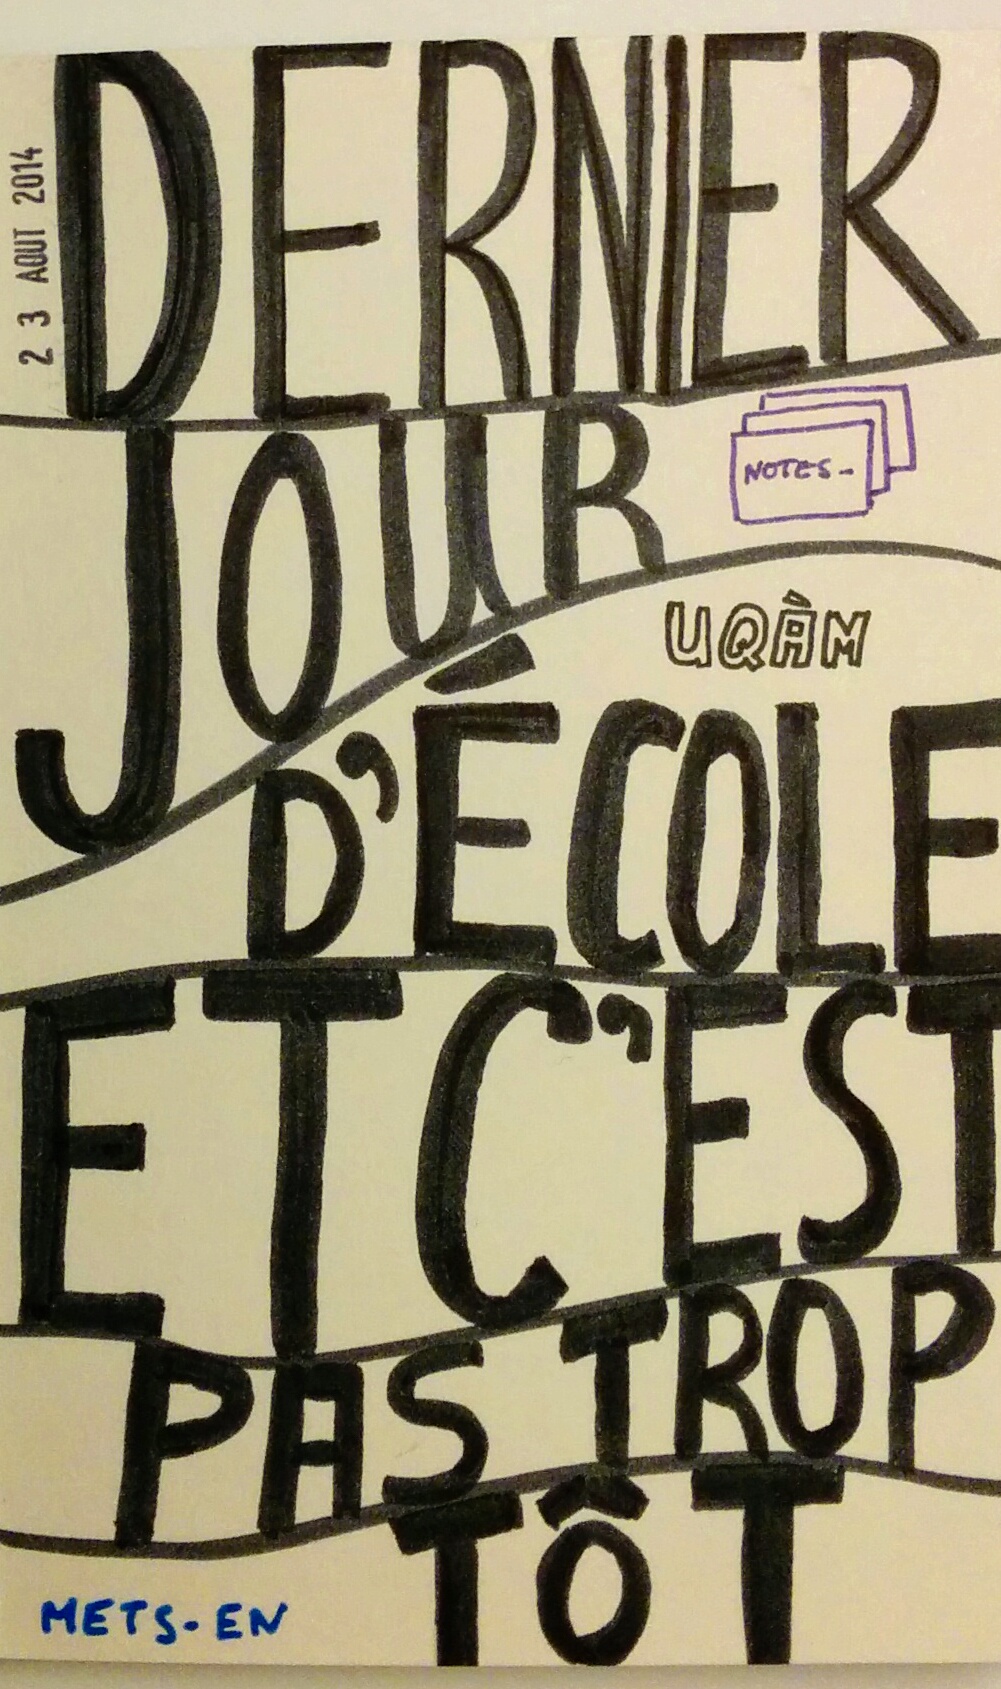 23 AOUT 2014
DERNIER
JOUR
NOTES-
UQÀM
D'ÉCOLE
ET C'EST
PAS TROP
TÔT
METS-EN